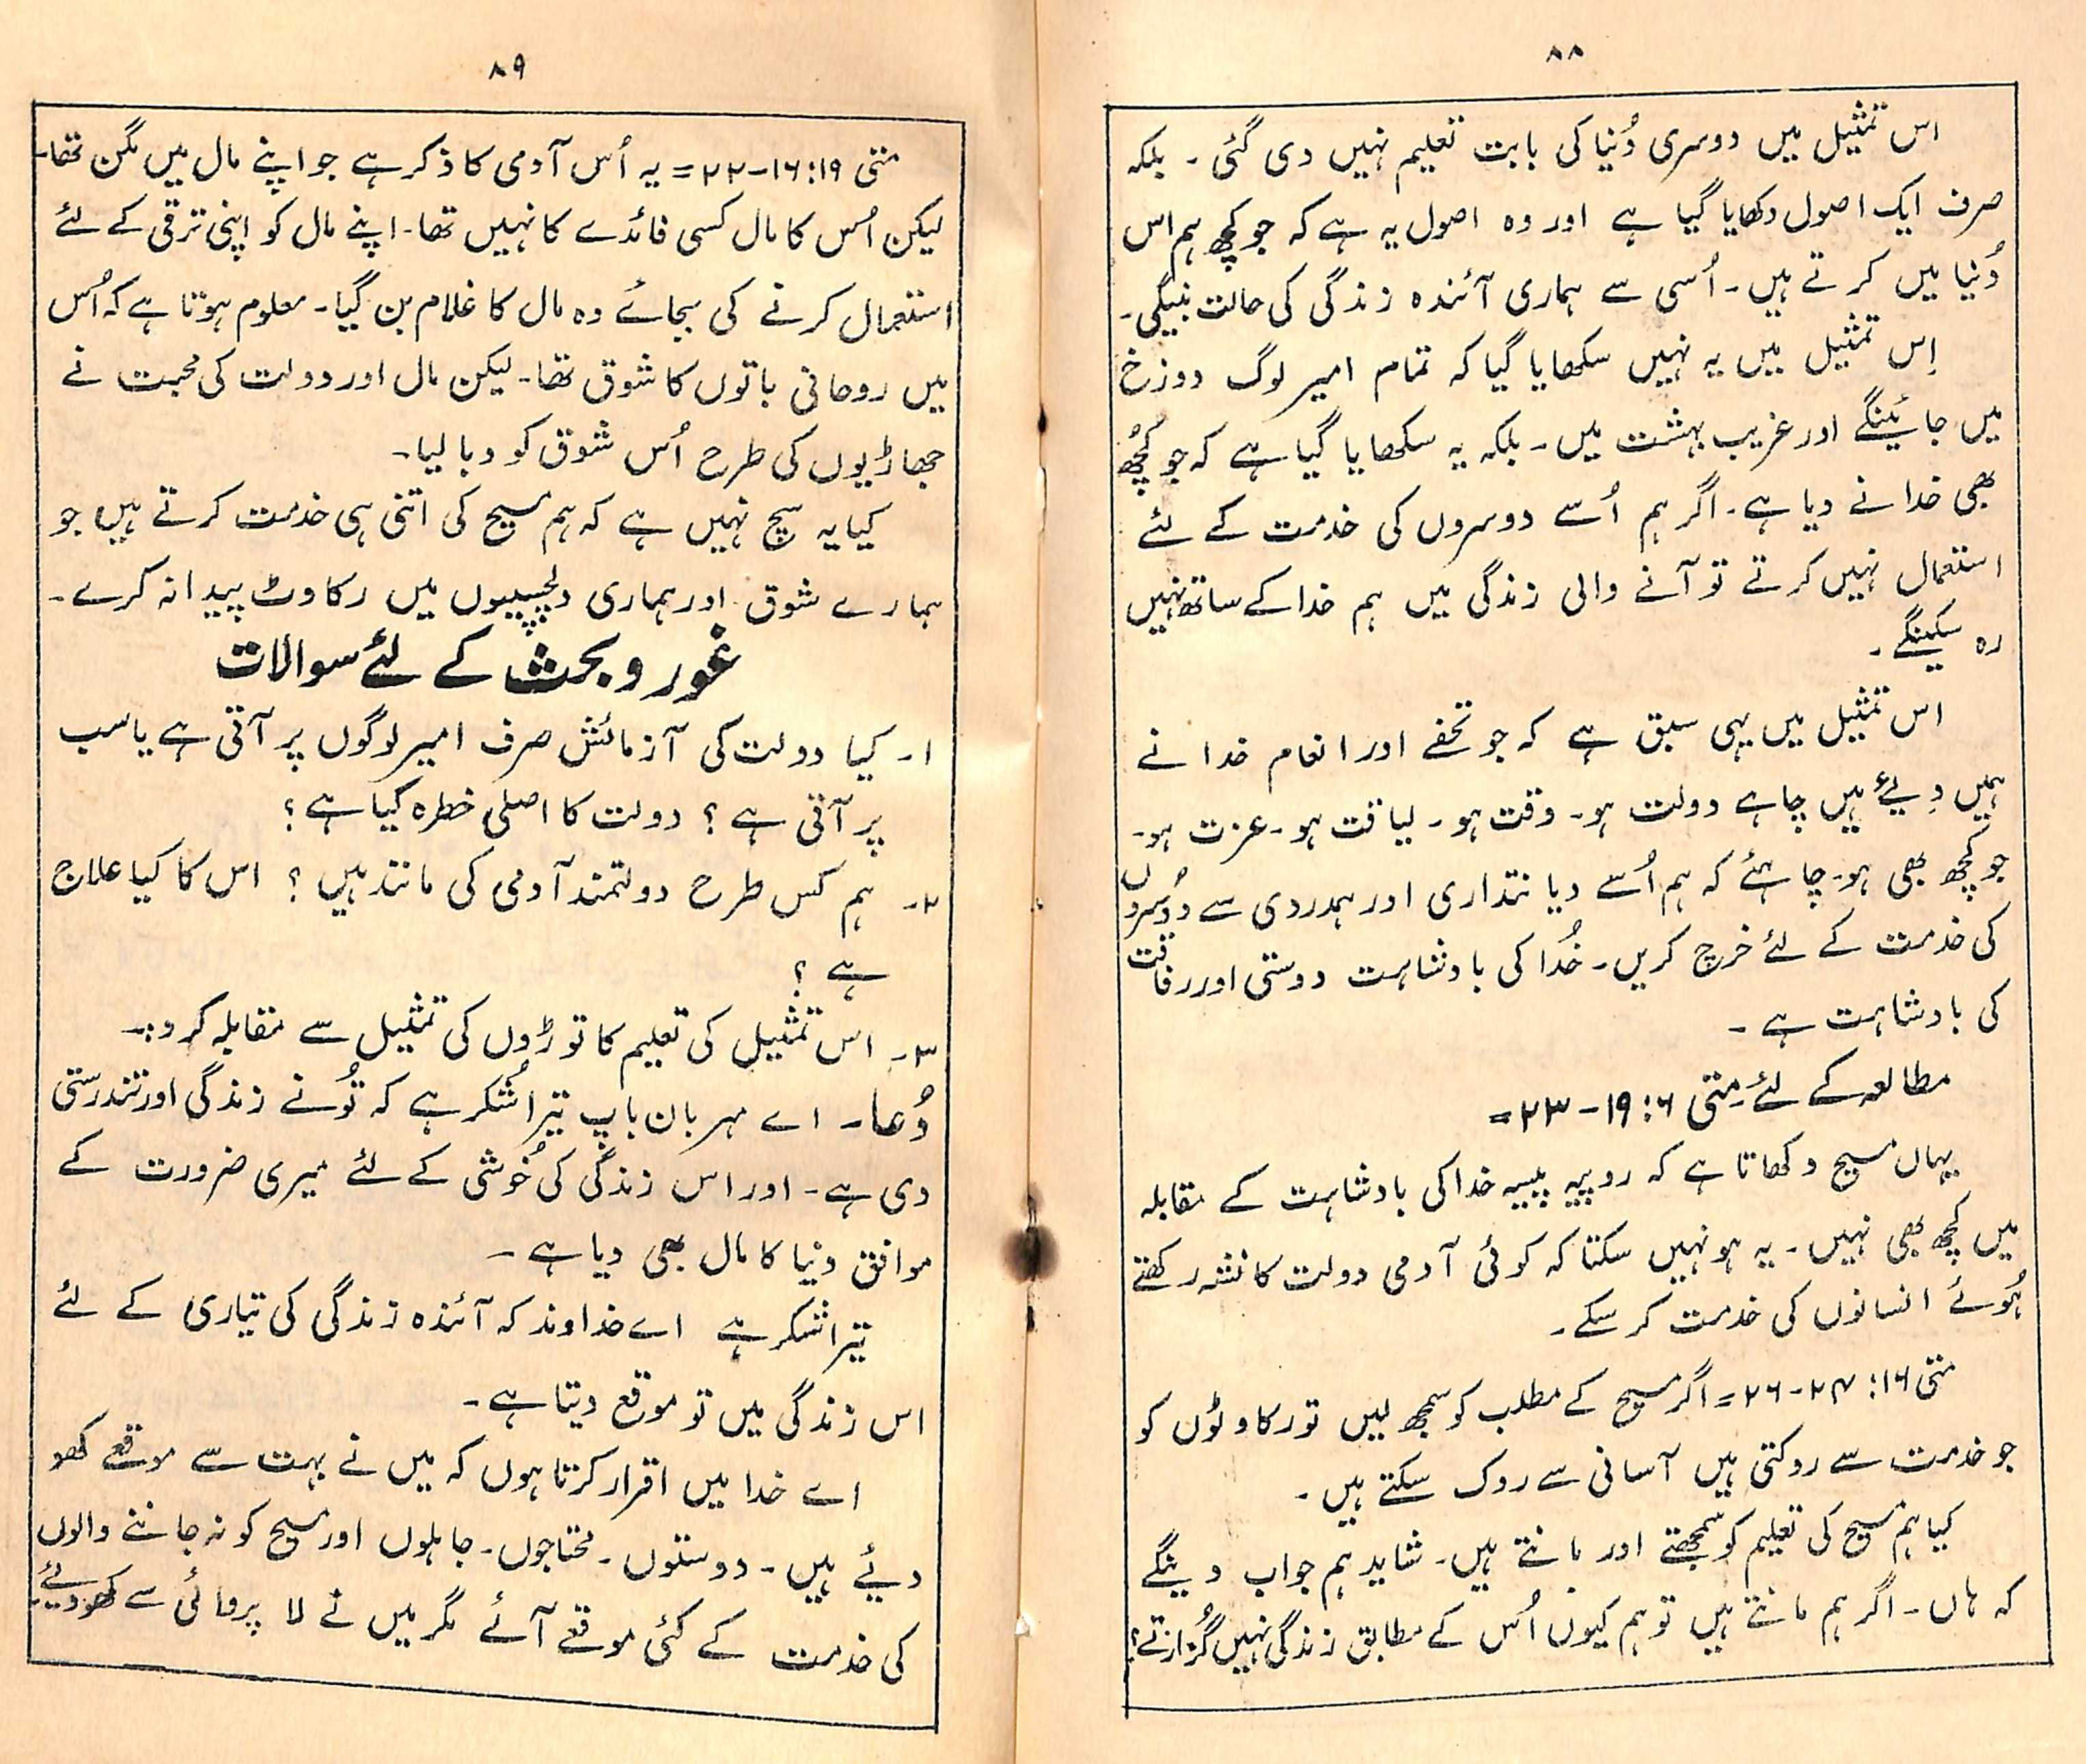 ۸۸
اس تمثیل میں دوسری دُنیا کی بابت تعلیم نہیں دی گئی ۔ بلکہ
صرف ایک اصول دکھایا گیا ہے اور وہ اصول یہ ہے کہ جو کچھ ہم اس
دُنیا میں کرتے ہیں۔ اُسی سے ہماری آئندہ زندگی کی حالت بنیگی۔
اِس تمثیل میں یہ نہیں سکھایا گیا کہ تمام امیر لوگ دوزخ
میں جائینگے اور غریب بہشت میں۔ بلکہ یہ سکھایا گیا ہے کہ جو کچُھ
بھی خدا نے دیا ہے۔ اگر ہم اُسے دوسروں کی خدمت کے لئے
استعمال نہیں کرتے تو آنے والی زندگی میں ہم خدا کے ساتھ نہیں
رہ سکینگے۔
اس تمثیل میں یہی سبق ہے کہ جو تحفے اور انعام خدا نے
ہمیں دِیۓ ہیں چاہے دولت ہو۔ وقت ہو۔ لیاقت ہو۔ عزت ہو۔
جو کچھ بھی ہو۔ چاہئے کہ ہم اُسے دیانتداری اور ہمدردی سے دُوسروں
کی خدمت کے لئے خرچ کریں۔ خُدا کی بادشاہت دوستی اور رفاقت
کی بادشاہت ہے ۔
مطالعہ کے لئے متی ۶:۱۹-۲۳=
یہاں مسیح دکھاتا ہے کہ روپیہ پیسہ خدا کی بادشاہت کے مقابلہ
میں کچھ بھی نہیں۔ یہ ہو نہیں سکتا کہ کوئی آدمی دولت کا نشہ رکھتے
ہُوئے انسانوں کی خدمت کر سکے۔
متی ۱۶: ۲۴-۲۶= اگر مسیح کے مطلب کو سمجھ لیں تو رکاوٹوں کو
جو خدمت سے روکتی ہیں آسانی سے روک سکتے ہیں۔
کیا ہم مسیح کی تعلیم کو سمجھتے اور مانتے ہیں۔ شاید ہم جواب دینگے
کہ ہاں۔ اگر ہم مانتے ہیں تو ہم کیوں اُس کے مطابق زندگی نہیں گُزارتے؟
۸۹
متی ۱۹:۱۶-۲۲= یہ اُس آدمی کا ذکر ہے جو اپنے مال میں مگن تھا۔
لیکن اُس کا مال کسی فائدے کا نہیں تھا۔ اپنے مال کو اپنی ترقی کے لئے
استعمال کرنے کی بجائے وہ مال کا غلام بن گیا۔ معلوم ہوتا ہے کہ اُس
میں روحانی باتوں کا شوق تھا۔ لیکن مال اور دولت کی محبت نے
جھاڑیوں کی طرح اُس شوق کو دبا لیا۔
کیا یہ سچ نہیں ہے کہ ہم مسیح کی اتنی ہی خدمت کرتے ہیں جو
ہمارے شوق اور ہماری دلچسپیوں میں رکاوٹ پیدا نہ کرے۔
غور و بحث کے لئے سوالات
۱۔ کیا دولت کی آزمائش صرف امیر لوگوں پر آتی ہے یا سب
پر آتی ہے ؟ دولت کا اصلی خطرہ کیا ہے ؟
۲۔ ہم کس طرح دولتمند آدمی کی مانند ہیں ؟ اس کا کیا علاج
ہے ؟
۳۔ اس تمثیل کی تعلیم کا توڑوں کی تمثیل سے مقابلہ کرو:۔
دُعا۔ اے مہربان باپ تیرا شُکر ہے کہ تُو نے زندگی اور تندرستی
دی ہے۔ اور اس زندگی کی خُوشی کے لئے میری ضرورت کے
موافق دنیا کا مال بھی دیا ہے ۔
تیرا شکر ہے اے خداوند کہ آئندہ زندگی کی تیاری کے لئے
اس زندگی میں تو موقع دیتا ہے۔
اے خدا میں اقرار کرتا ہوں کہ میں نے بہت سے موقعے کھو
دیے ہیں۔ دوستوں۔ محتاجوں۔ جاہلوں اور مسیح کو نہ جاننے والوں
کی خدمت کے کئی موقعے آئے مگر میں نے لا پروائی سے کھو دیئے۔